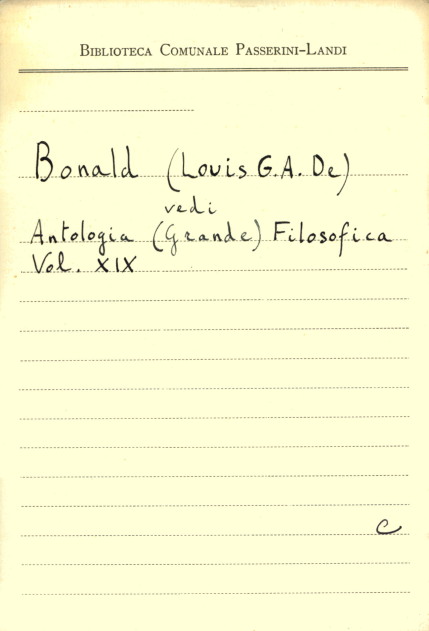 Biblioteca Comunale Passerini-Landi
Bonald (Louis G.A. De)
vedi
Antologia (Grande) Filosofica
Vol. XIX
C